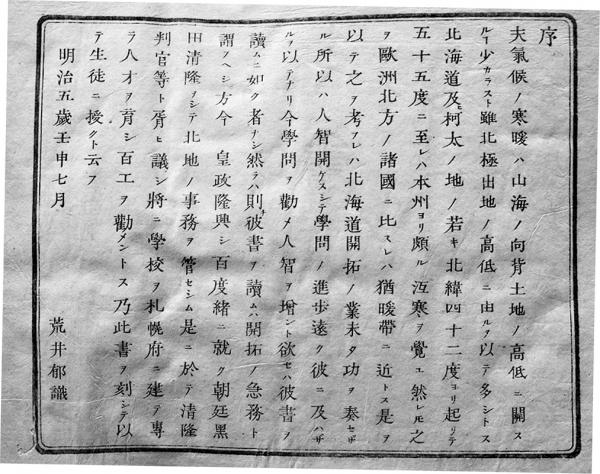 序
夫氣候ノ寒暖ハ山海ノ向背土地ノ高低ニ關ス
ルヿ少カラスト雖北極出地ノ高低ニ由ルヲ以テ多シトス
北海道及ヒ柯太ノ地ノ若キ北緯四十二度ヨリ起リテ
五十五度ニ至レハ本州ヨリ頗ル沍寒ヲ覺ユ然レ𪜈之
ヲ歐洲北方ノ諸國ニ比スレハ猶暖帶ニ近トス是ヲ
以テ之ヲ考フレハ北海道開拓ノ業未タ功ヲ奏セザ
ル所以ハ人智開ケスシテ學問ノ進歩遠ク彼ニ及ハザ
ルヲ以テナリ今學問ヲ勸メ人智ヲ增ント欲セハ彼書ヲ
讀ムニ如ク者ナシ然ラハ則彼書ヲ讀ムハ開拓ノ急務ト
謂フヘシ方今 皇政隆興シ百度緒ニ就ク朝廷黑
田清隆ヲシテ北地ノ事務ヲ管セシム是ニ於テ清隆
判官等ト胥ヒ議シ將ニ學校ヲ札幌府ニ建テ專
ラ人才ヲ育シ百工ヲ勸メントス乃此書ヲ刻シテ以
テ生徒ニ授クト云フ
明治五歲壬申七月
荒井郁識